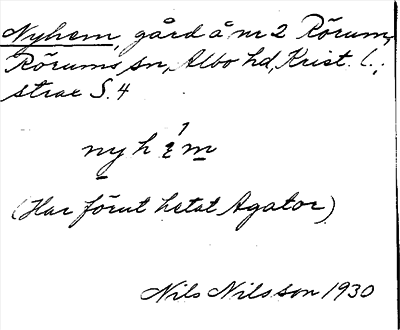 Nyhem, gård å nr 2 Rörum,
Rörums sn, Albo hd, Krist. l.;
strae S. 4
nyhem
(Har förut hetat Agator)
Nils Nilsson 1930